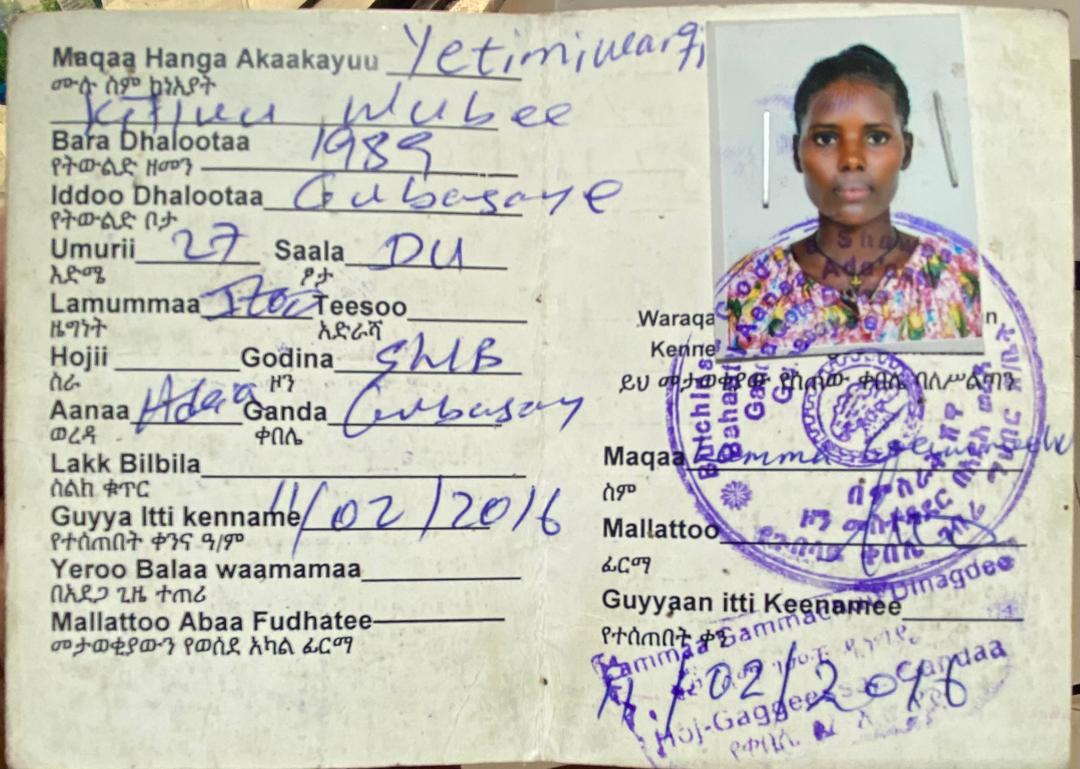 Maqaa Hanga Akaakayuu Yetimiwargi
ሙሉ ስም ከነአያት
Kifluu Wubee
Bara Dhalootaa 1989
የትውልድ ዘመን
Iddoo Dhalootaa Gubasaye
የትውልድ ቦታ
Umurii 27 Saala DU
እድሜ ፆታ
Lamummaa Itoo Teesoo
ዜግነት አድራሻ
Hojii Godina ShLB
ስራ ዞን
Aanaa Adaa Ganda Gubasay
ወረዳ ቀበሌ
Lakk Bilbila
ስልክ ቁጥር
Guyya Itti kenname 11/02/2016
የተሰጠበት ቀንና ዓ/ም
Yeroo Balaa waamamaa
በአደጋ ጊዜ ተጠሪ
Mallattoo Abaa Fudhatee
መታወቂያውን የወሰደ አካል ፊርማ
Waraqa
Kenne
ይህ መታወቂያው የሰጠው ቀበሌ ባለሥልጣን
Maqaa
ስም
Mallattoo
ፊርማ
Guyyaan itti Keenamee
የተሰጠበት ቀን
11/02/2016
Dinagdee